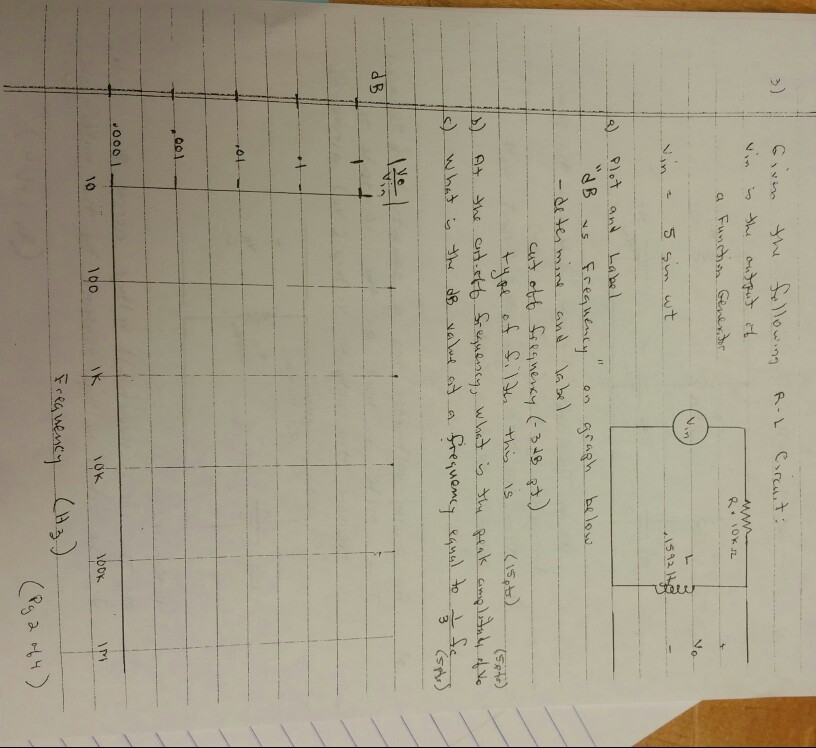 3) Given the following R-L Circuit:
Vin is the output of
a Function Generator
Vin = 5 sin wt
Vin
R = 10KΩ
L
.1592 H
+
Vo
-
a) Plot and Label
"dB vs Frequency" on graph below
- determine and label
cut off frequency (-3dB pt)
type of filter this is (15pts)
b) At the cut-off frequency, what is the peak amplitude of Vo
(5pts)
c) What is the dB value at a frequency equal to 1/3 fc
(5pts)
dB
|Vo/Vin|
1
.1
.01
.001
.0001
10 100 1K 10K 100K 1M
Frequency (Hz)
(Pg 2 of 4)